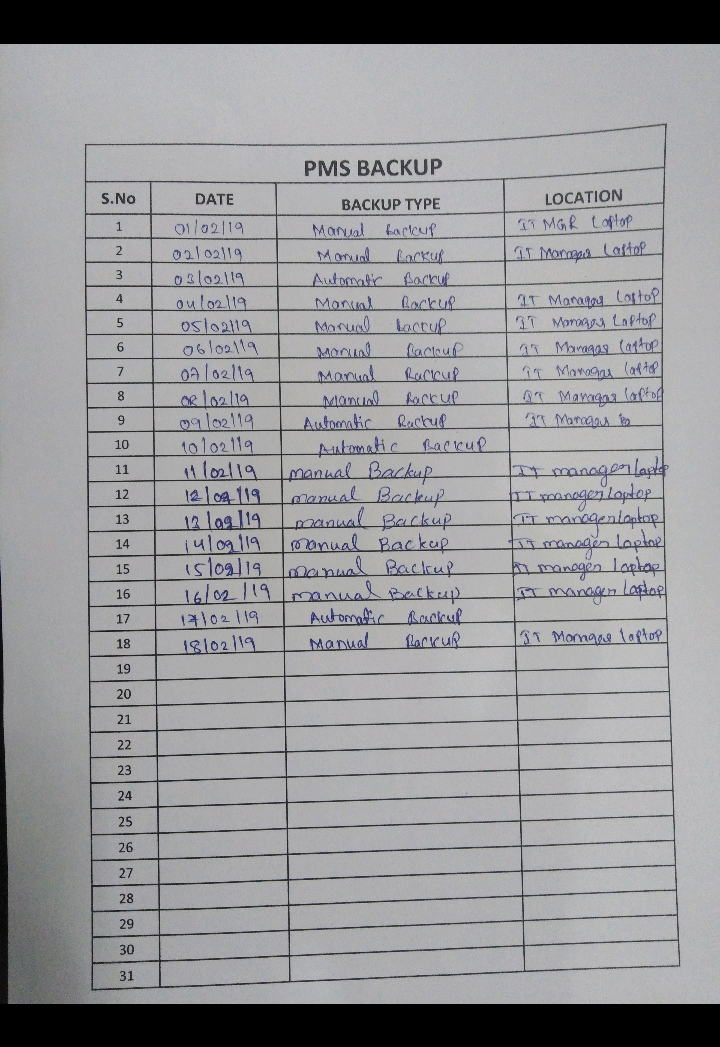 PMS BACKUP
S.No DATE BACKUP TYPE LOCATION
1 01/02/19 Manual Backup IT MGR Laptop
2 02/02/19 Manual Backup IT Manager Laptop
3 03/02/19 Automatic Backup
4 04/02/19 Manual Backup IT Manager Laptop
5 05/02/19 Manual Backup IT Manager Laptop
6 06/02/19 Manual Backup IT Manager Laptop
7 07/02/19 Manual Backup IT Manager Laptop
8 08/02/19 Manual Backup IT Manager Laptop
9 09/02/19 Automatic Backup IT Manager
10 10/02/19 Automatic Backup
11 11/02/19 manual Backup IT manager Laptop
12 12/02/19 manual Backup IT manager Laptop
13 13/02/19 manual Backup IT manager Laptop
14 14/02/19 manual Backup IT manager Laptop
15 15/02/19 manual Backup IT manager Laptop
16 16/02/19 manual Backup IT manager Laptop
17 17/02/19 Automatic Backup
18 18/02/19 Manual Backup IT Manager Laptop
19
20
21
22
23
24
25
26
27
28
29
30
31